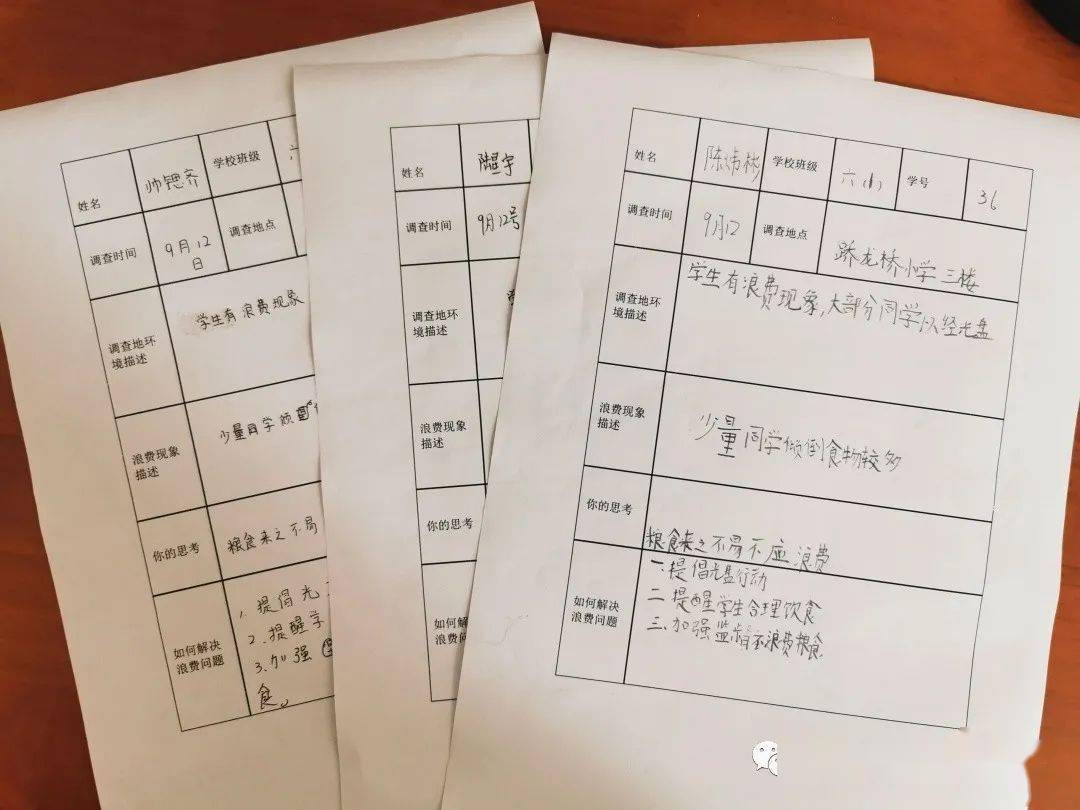 姓名 帅锶齐 学校班级 六
调查时间 9月12日 调查地点
调查地环境描述 学生有浪费现象
浪费现象描述 少量同学倾
你的思考 粮食来之不易
如何解决浪费问题
1.提倡光
2.提醒学
3.加强
食。
姓名
调查时间 9月12号
调查地环境描述
浪费现象描述
你的思考
如何解决浪费问题
姓名 陈炜彬 学校班级 六(1) 学号 36
调查时间 9月12 调查地点 跻龙桥小学三楼
调查地环境描述 学生有浪费现象,大部分同学以经光盘
浪费现象描述 少量同学倾倒食物较多
你的思考 粮食来之不易不应浪费
如何解决浪费问题
一.提倡光盘行动
二 提醒学生合理饮食
三.加强监督不浪费粮食